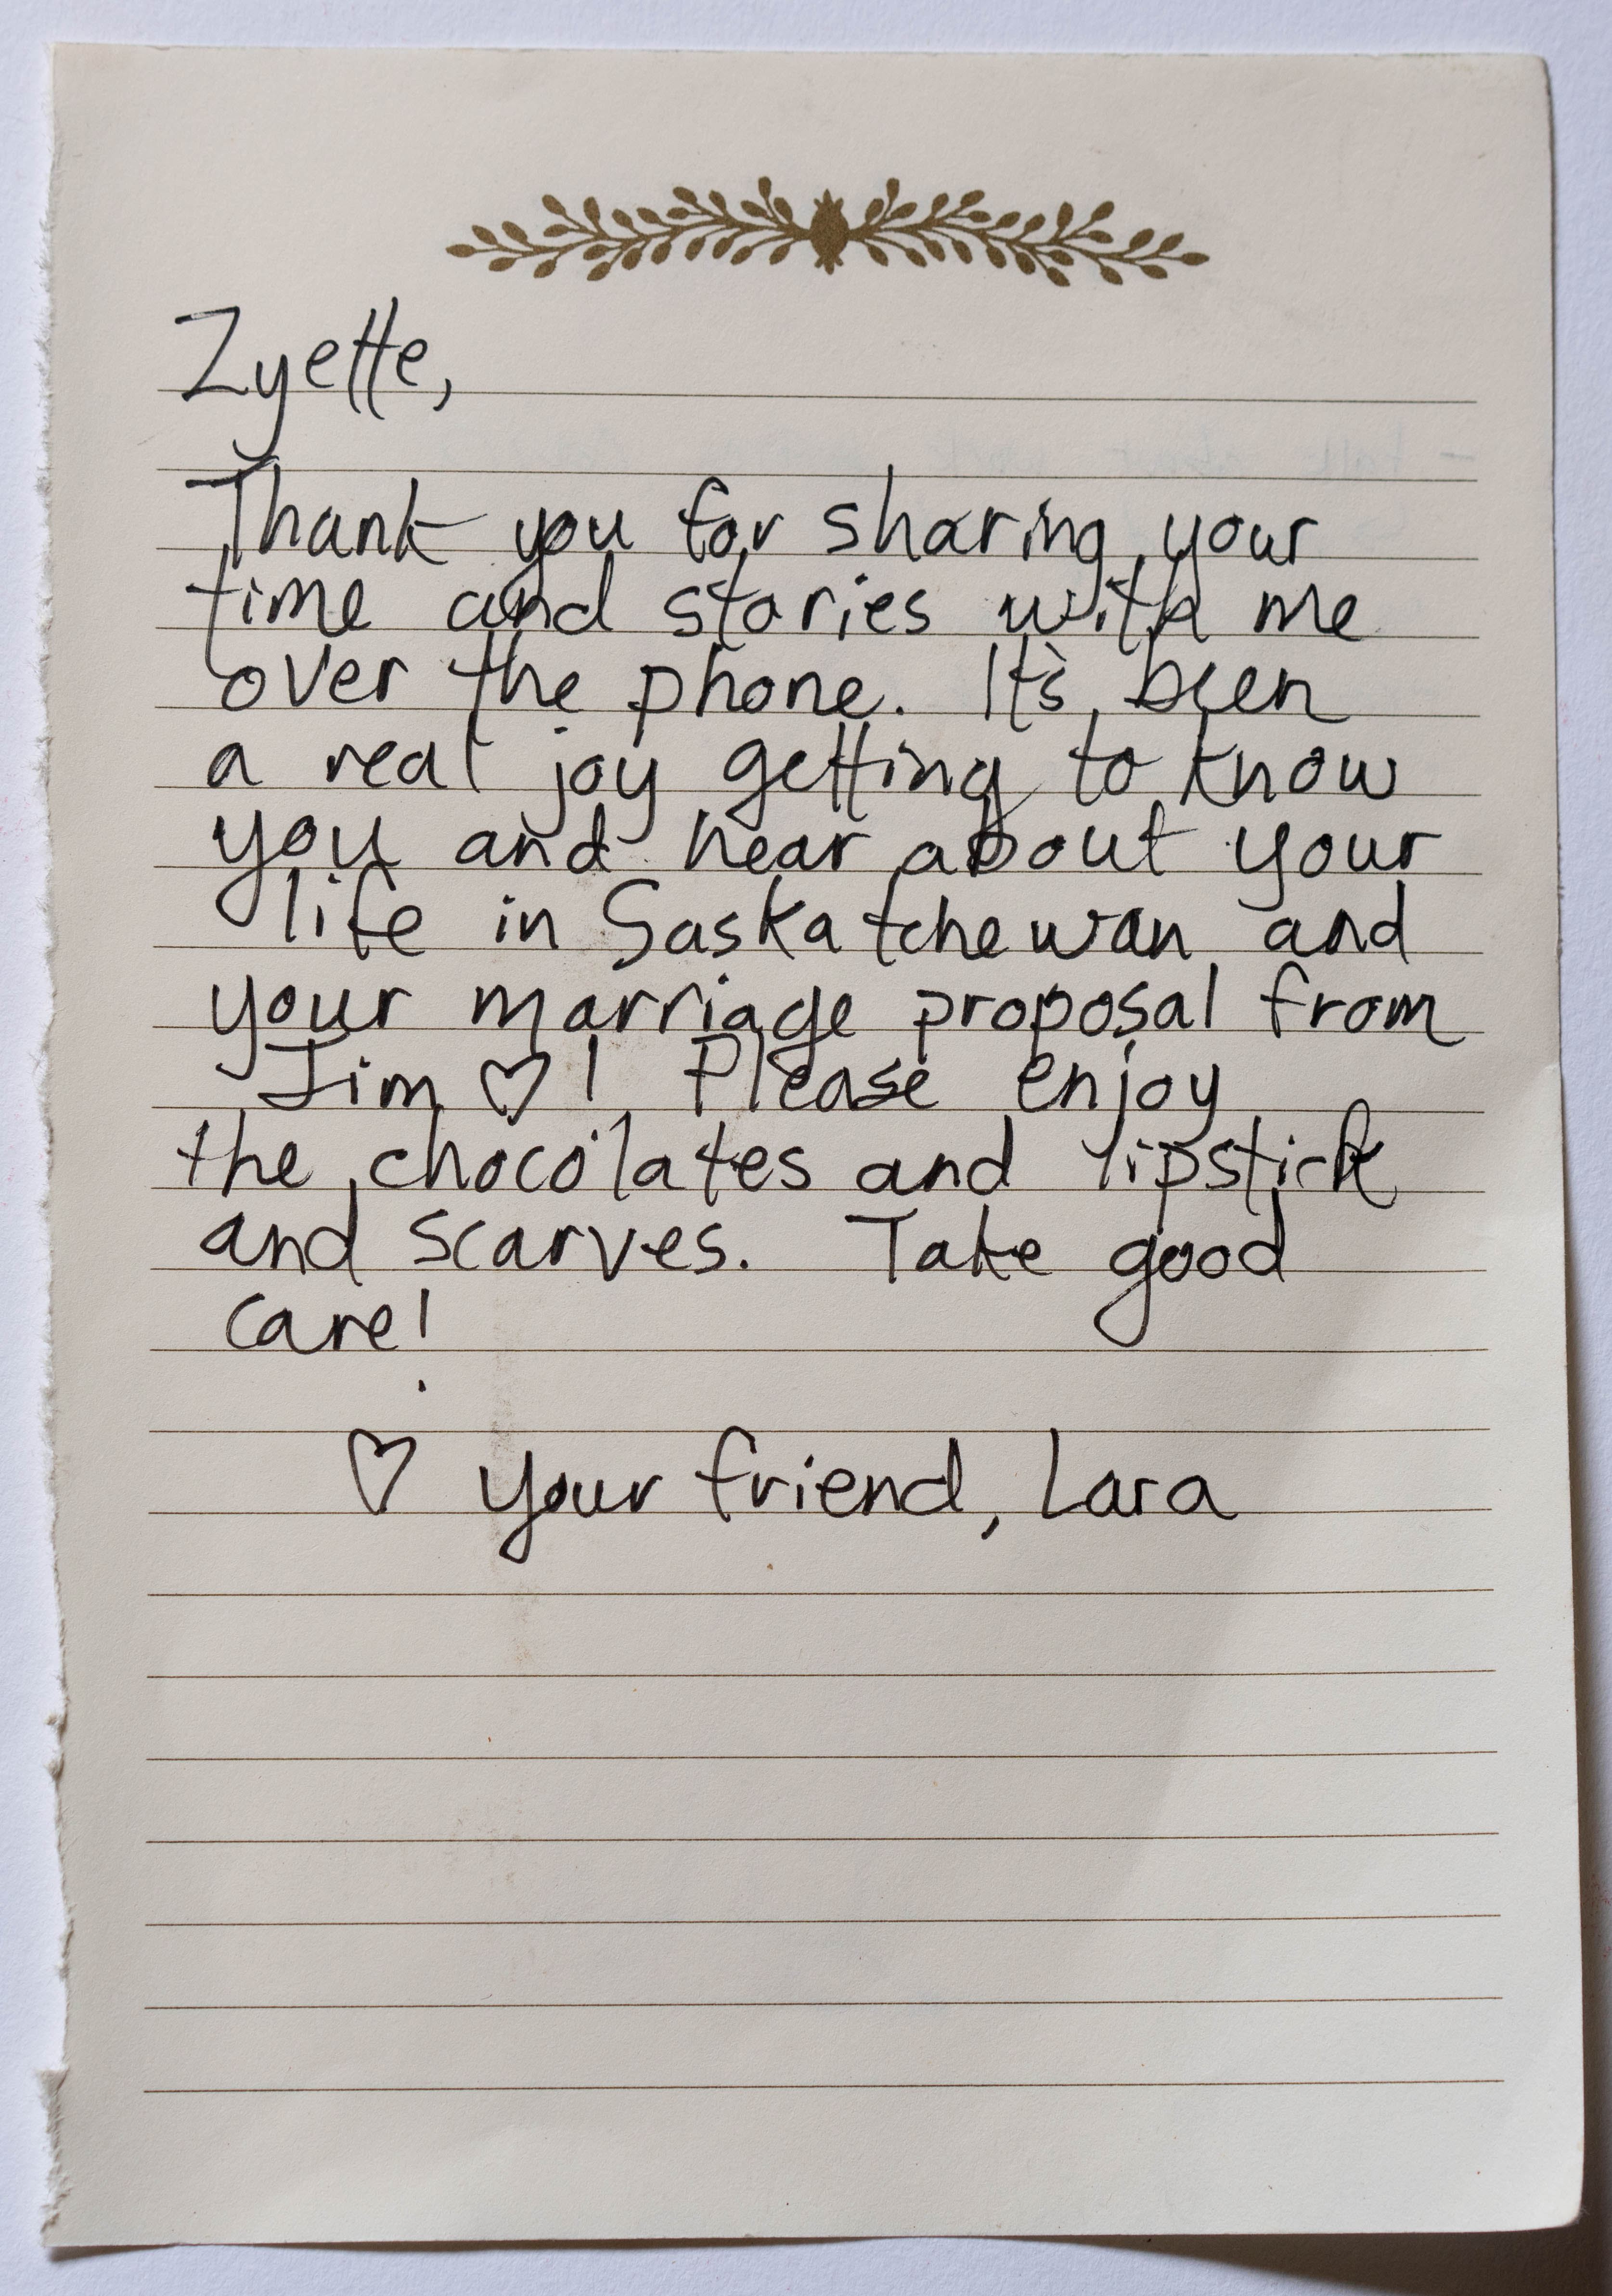 Zyette,
Thank you for sharing your
time and stories with me
over the phone. It's been
a real joy getting to know
you and hear about your
life in Saskatchewan and
your marriage proposal from
Jim ♡! Please enjoy
the chocolates and lipstick
and scarves. Take good
care!
♡ your friend, Lara